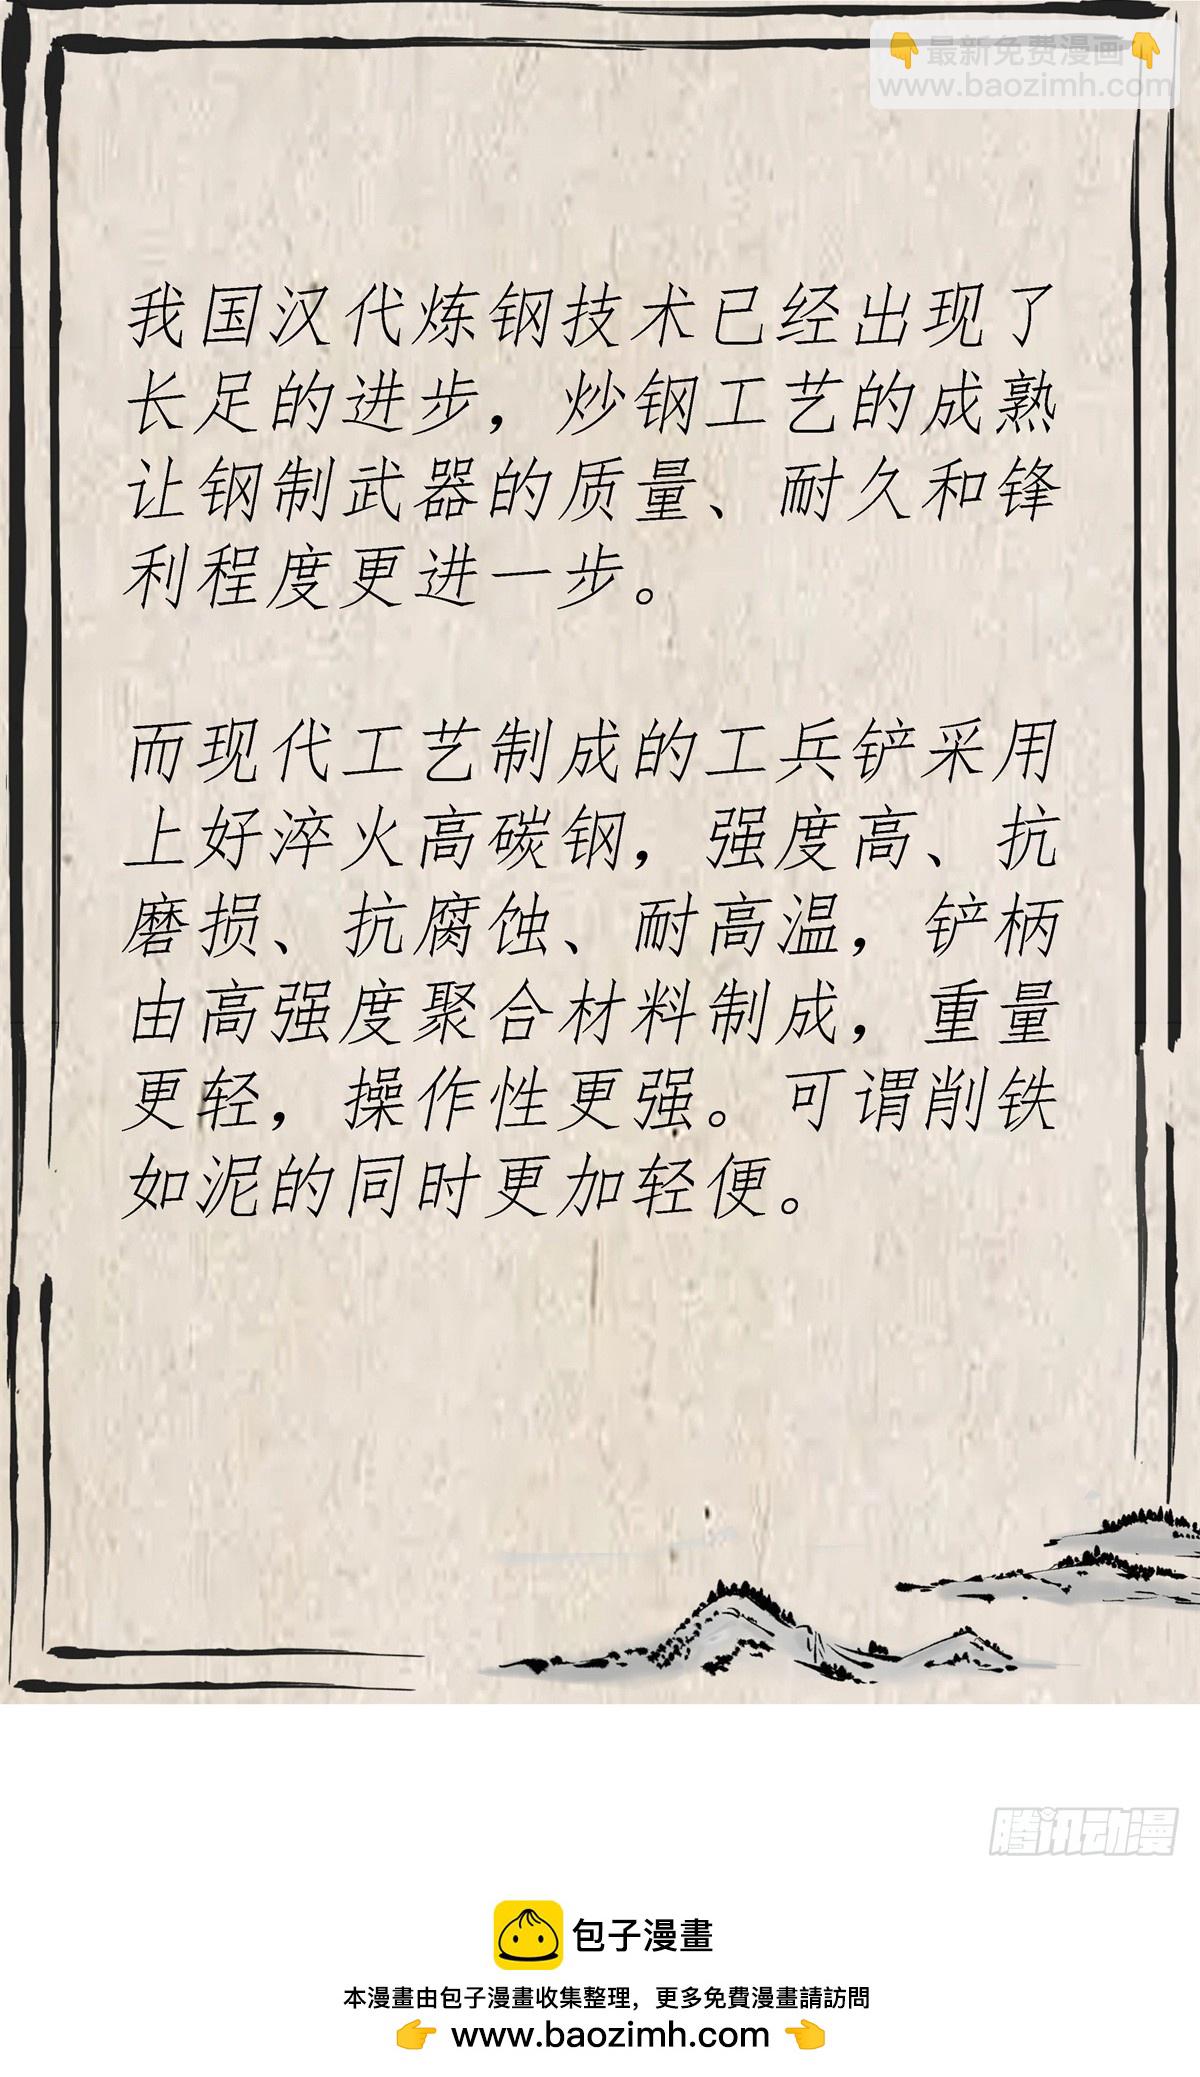 👇最新免费漫画👇
www.baozimh.com
我国汉代炼钢技术已经出现了
长足的进步，炒钢工艺的成熟
让钢制武器的质量、耐久和锋
利程度更进一步。
而现代工艺制成的工兵铲采用
上好淬火高碳钢，强度高、抗
磨损、抗腐蚀、耐高温，铲柄
由高强度聚合材料制成，重量
更轻，操作性更强。可谓削铁
如泥的同时更加轻便。
腾讯动漫
包子漫畫
本漫畫由包子漫畫收集整理，更多免費漫畫請訪問
👉 www.baozimh.com 👈